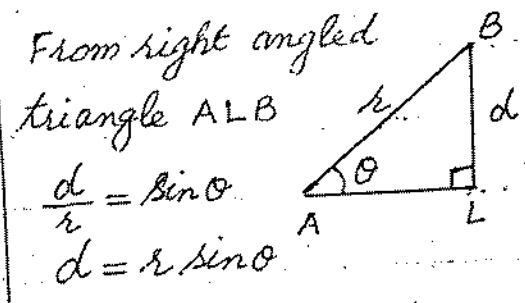 From right angled
triangle ALB
d/r = sinθ
d = r sinθ
B
r
d
θ
A
L